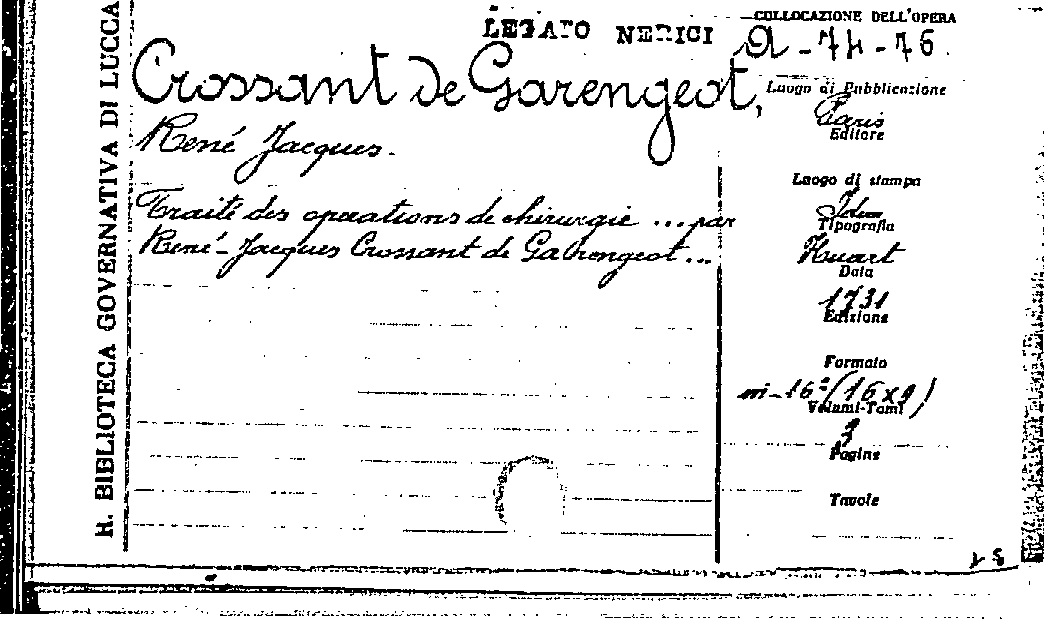 R. BIBLIOTECA GOVERNATIVA DI LUCCA
LEGATO NERICI
COLLOCAZIONE DELL'OPERA
a-74-76.
Crossant de Garengeot,
René Jacques.
Traité des operations de chirurgie ... par
René-Jacques Crossant de Garengeot ...
Luogo di Pubblicazione
Paris
Editore
Luogo di stampa
Idem
Tipografia
Huart
Data
1731
Edizione
Formato
in-16º (16x9)
Volumi-Tomi
3
Pagine
Tavole